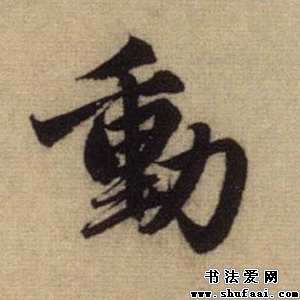 動
书法爱网
www.shufaai.com